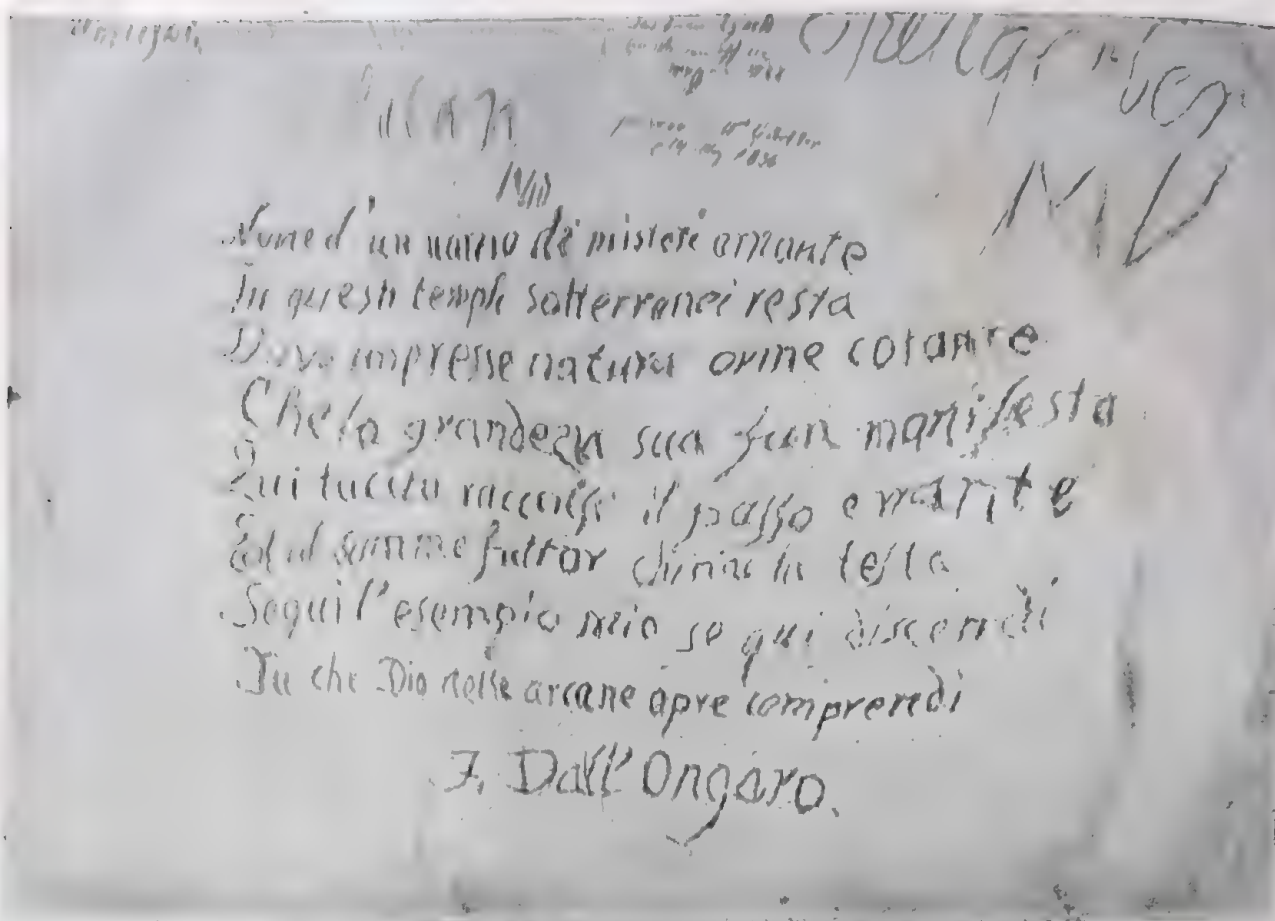 MV
Nome d'un uomo de' misteri amante
In questi templi sotterranei resta
Dove impresse natura orme cotante
Che la grandezza sua fan manifesta
Qui tacito raccolsi il passo errante
Ed al sommo fattor chinai la testa
Segui l'esempio mio se qui discendi
Tu che Dio nelle arcane opre comprendi
F. Dall'Ongaro.